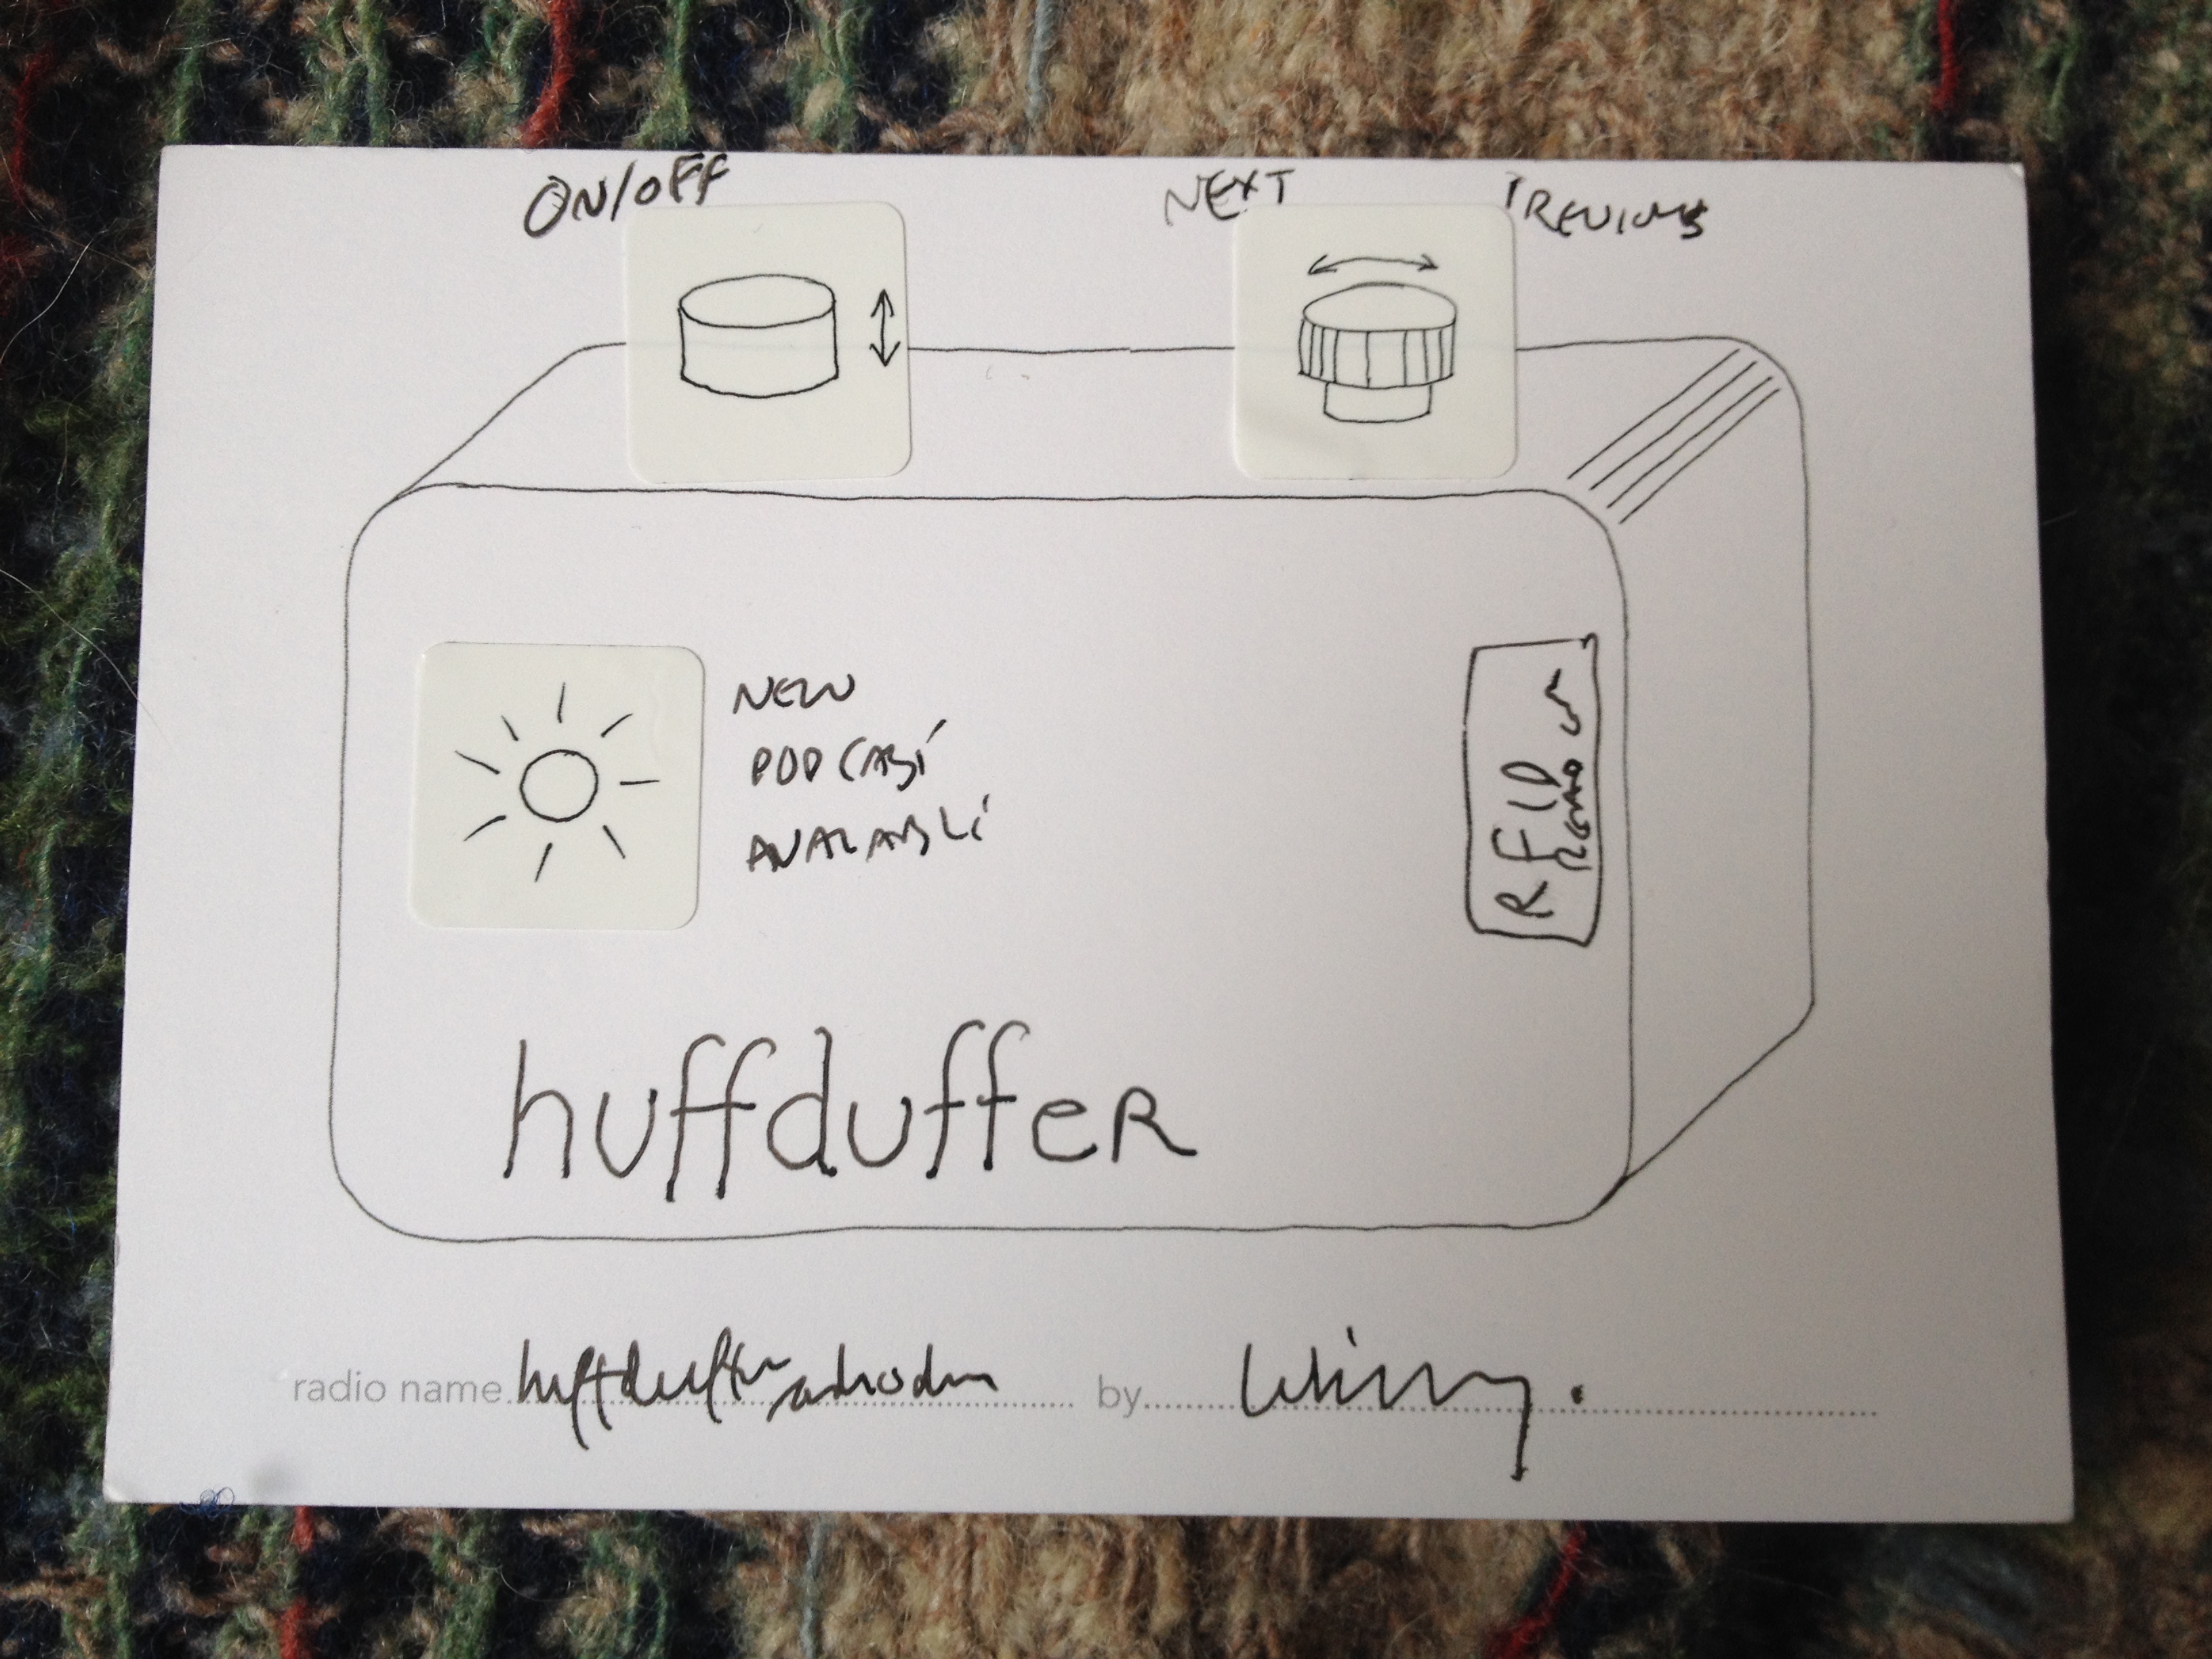 ON/OFF
NEXT PREVIOUS
NEW
PODCAST
AVAILABLE
RFID
READER
huffduffeR
radio name huffduffer by